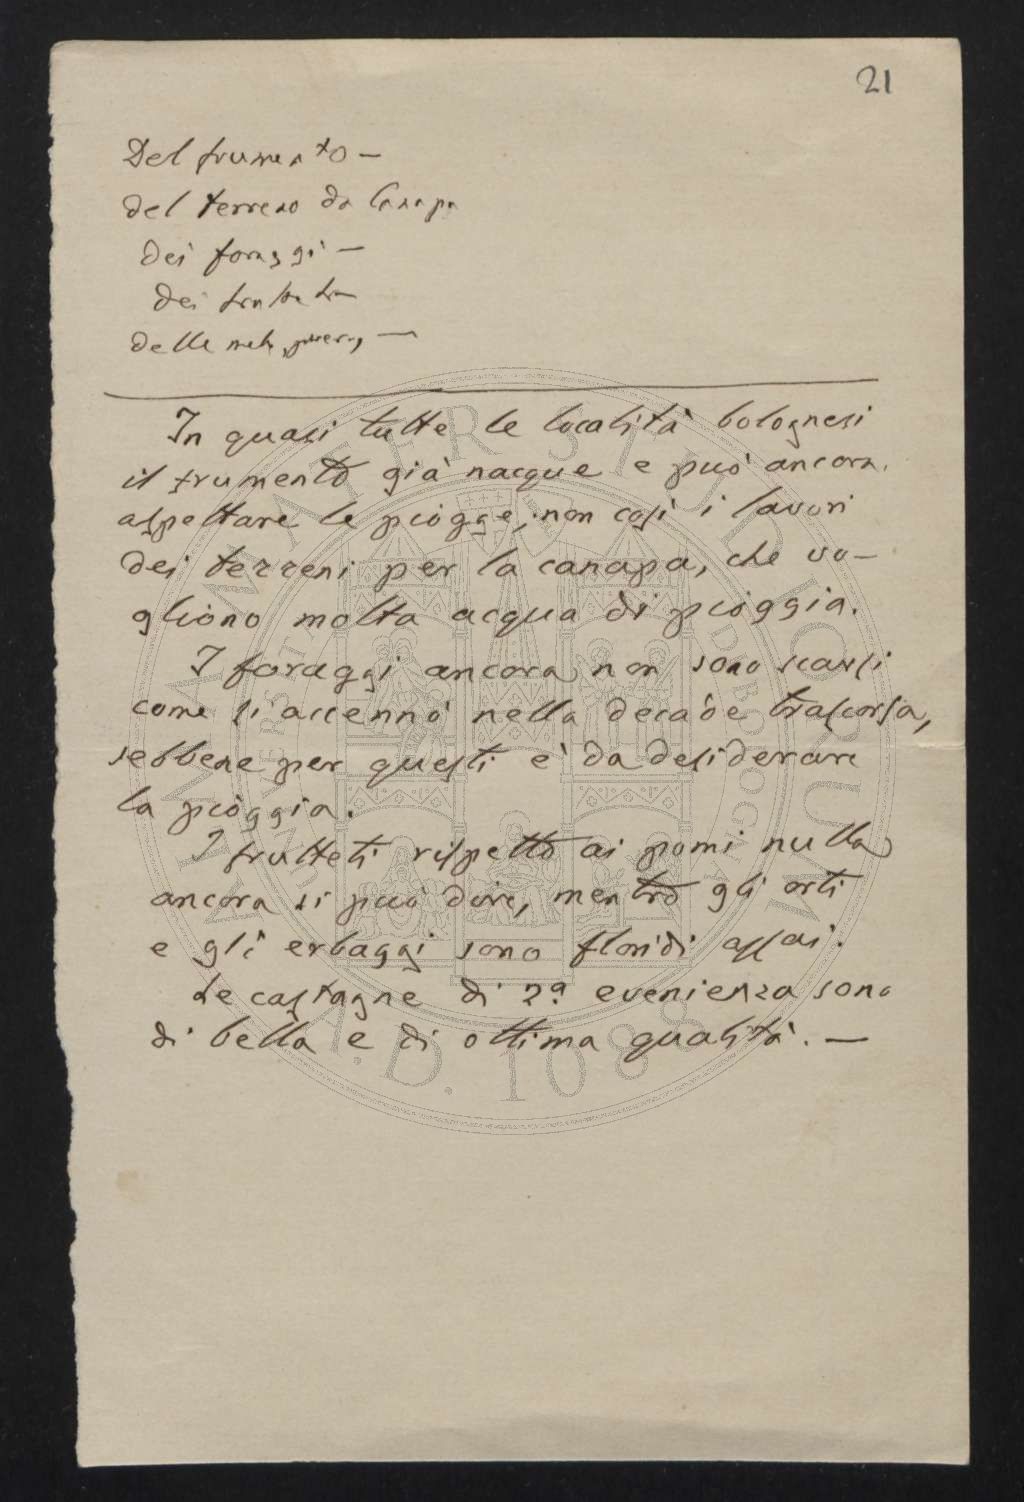 21
Del frumento —
del terreno da Canapa
dei foraggi —
dei frutteti —
delle mele,
In quasi tutte le località bolognesi
il frumento già nacque e può ancora
aspettare le piogge, non così i lavori
dei terreni per la canapa, che vo-
gliono molta acqua di pioggia.
I foraggi ancora non sono scarsi
come si accennò nella decade trascorsa,
sebbene per questi è da desiderare
la pioggia.
I frutteti rispetto ai pomi nulla
ancora si può dire, mentre gli orti
e gli erbaggi sono floridi assai.
Le castagne di 2ª evenienza sono
di bella e di ottima qualità. —
ALMA MATER STUDIORUM
A.D. 1088